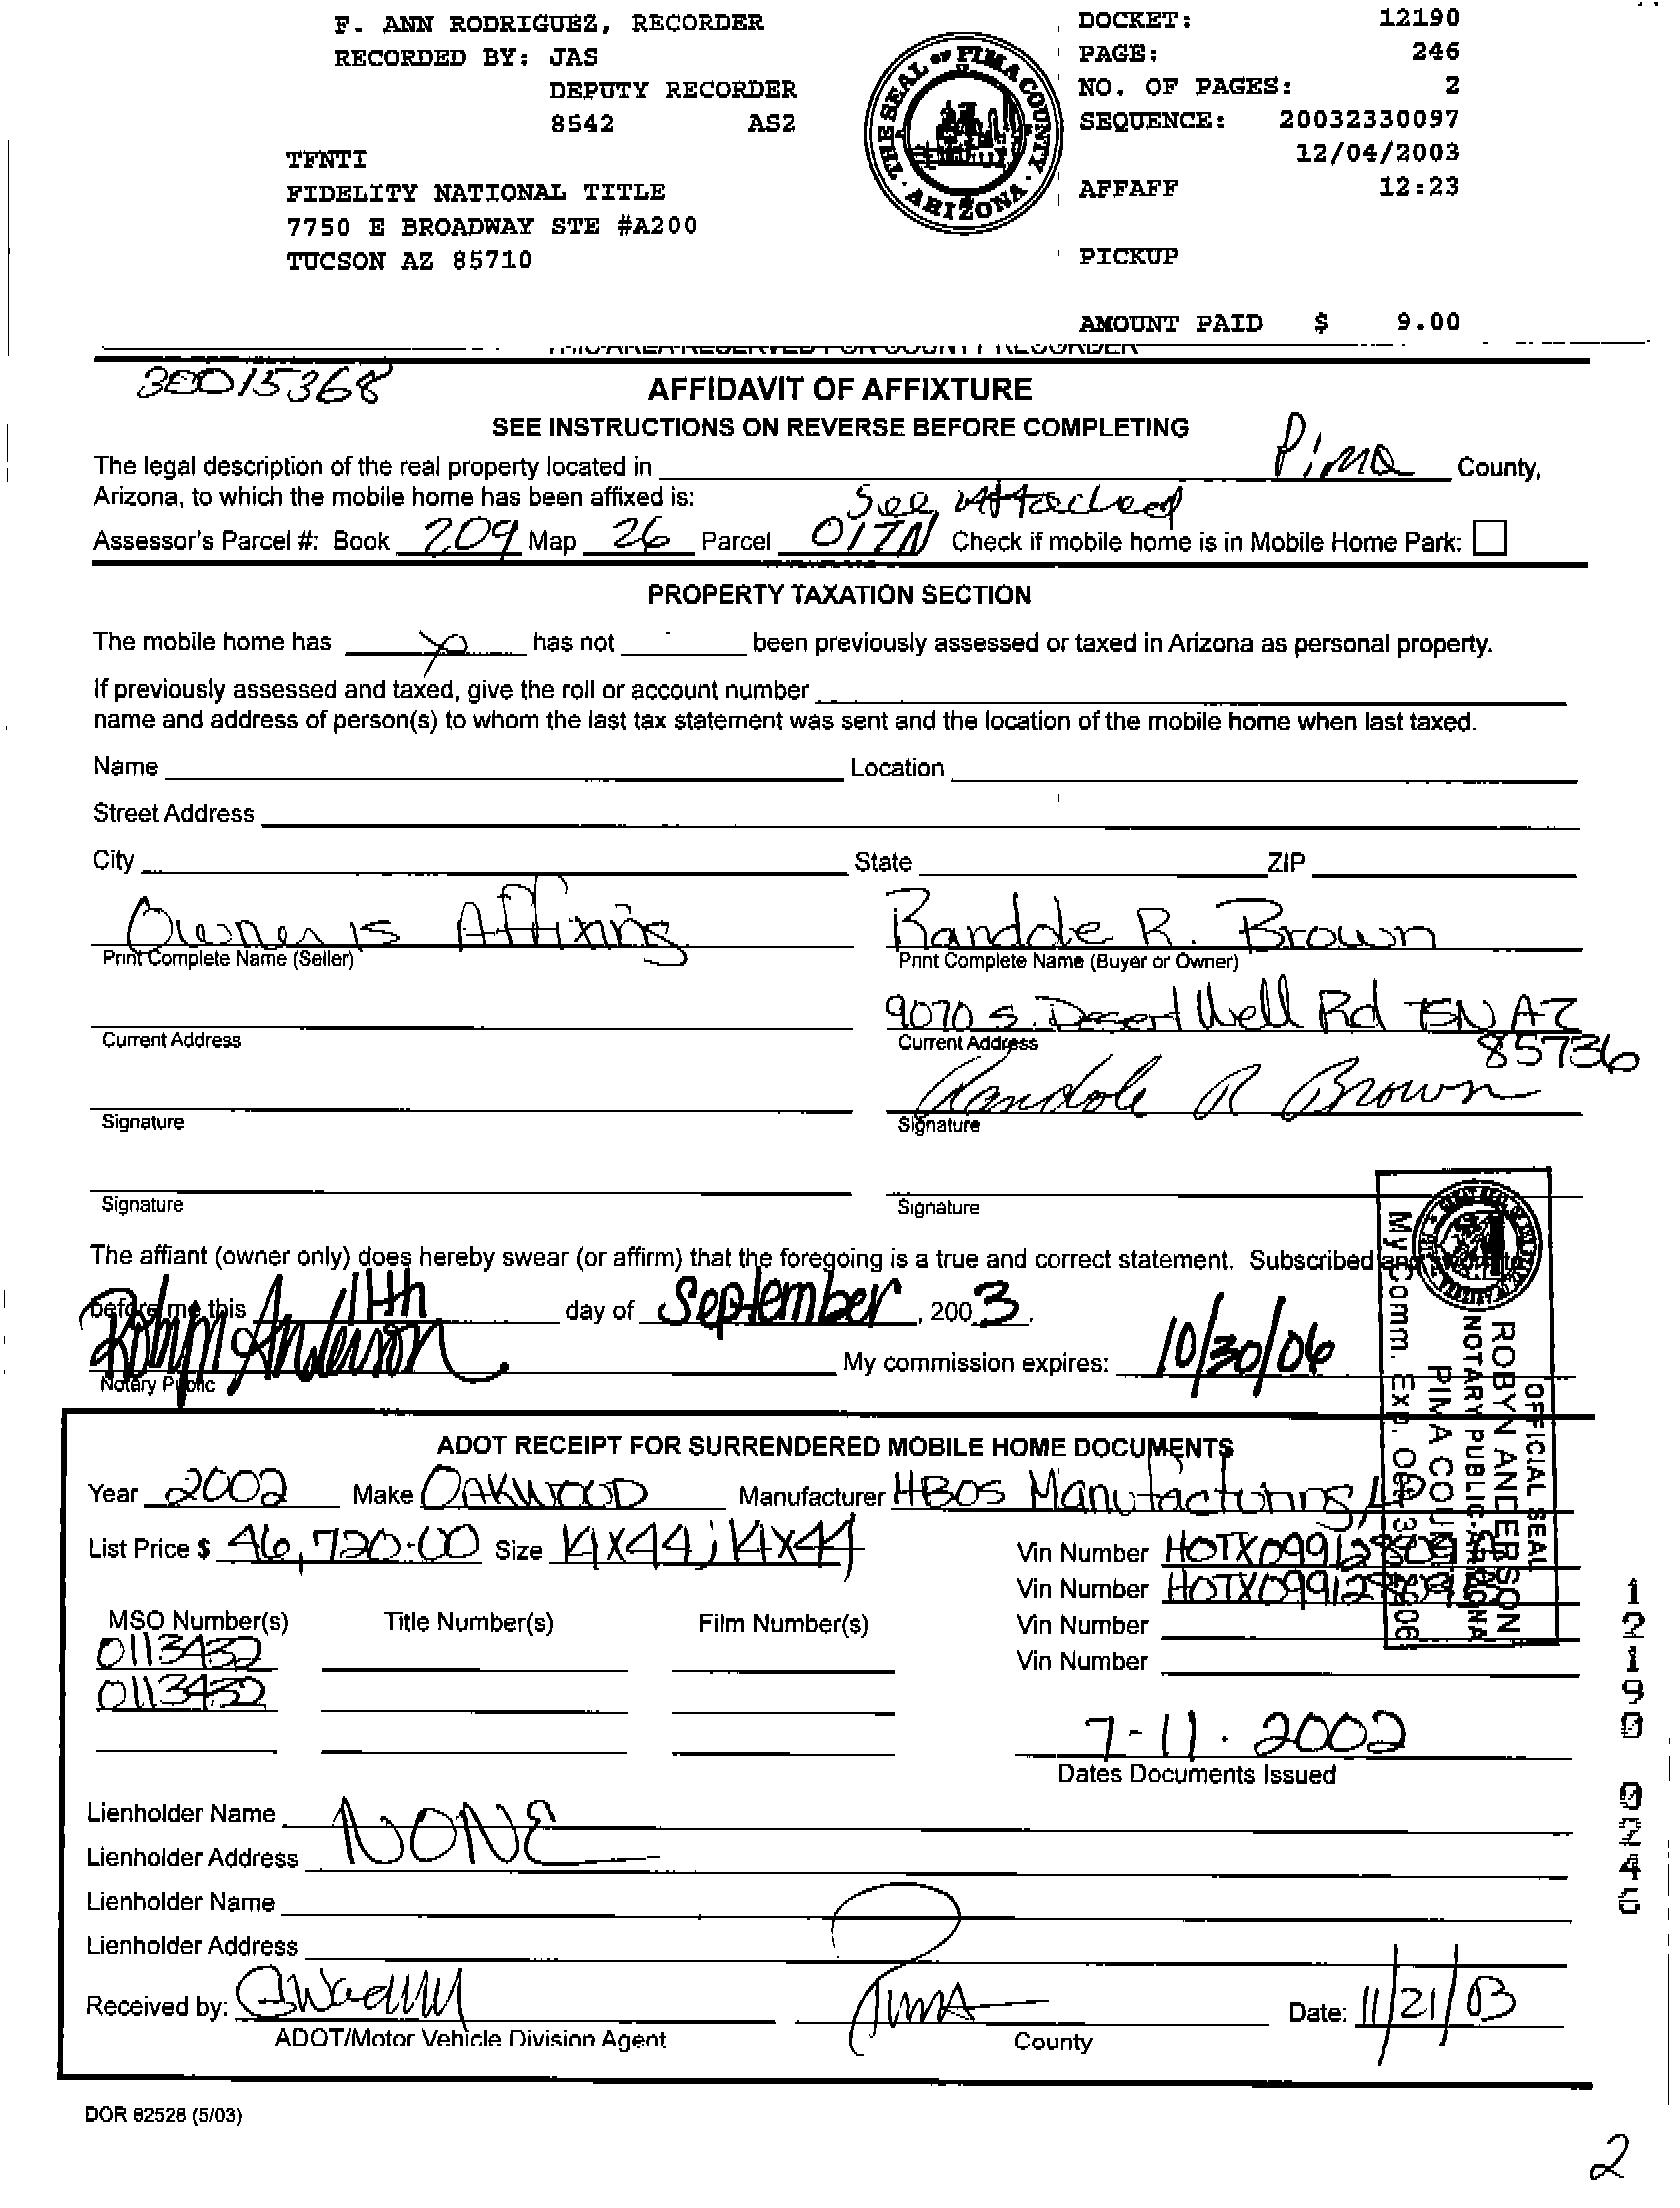 F. ANN RODRIGUEZ, RECORDER
RECORDED BY: JAS
DEPUTY RECORDER
8542 AS2
TFNTI
FIDELITY NATIONAL TITLE
7750 E BROADWAY STE #A200
TUCSON AZ 85710
THE SEAL OF PIMA COUNTY · ARIZONA ·
DOCKET: 12190
PAGE: 246
NO. OF PAGES: 2
SEQUENCE: 20032330097
12/04/2003
AFFAFF 12:23
PICKUP
AMOUNT PAID $ 9.00
30015368
AFFIDAVIT OF AFFIXTURE
SEE INSTRUCTIONS ON REVERSE BEFORE COMPLETING
The legal description of the real property located in Pima County,
Arizona, to which the mobile home has been affixed is: See attached
Assessor's Parcel #: Book 209 Map 26 Parcel 017N Check if mobile home is in Mobile Home Park:
PROPERTY TAXATION SECTION
The mobile home has X has not been previously assessed or taxed in Arizona as personal property.
If previously assessed and taxed, give the roll or account number
name and address of person(s) to whom the last tax statement was sent and the location of the mobile home when last taxed.
Name Location
Street Address
City State ZIP
Owner is Affixing Randole R. Brown
Print Complete Name (Seller) Print Complete Name (Buyer or Owner)
9070 S. Desert Well Rd TSN AZ
85736
Current Address Current Address
Randole R Brown
Signature Signature
Signature Signature
The affiant (owner only) does hereby swear (or affirm) that the foregoing is a true and correct statement. Subscribed and sworn to
before me this 11th day of September, 2003.
Robyn Anderson My commission expires: 10/30/06
Notary Public
OFFICIAL SEAL
ROBYN ANDERSON
NOTARY PUBLIC-ARIZONA
PIMA COUNTY
My Comm. Exp. Oct. 30, 2006
ADOT RECEIPT FOR SURRENDERED MOBILE HOME DOCUMENTS
Year 2002 Make OAKWOOD Manufacturer HBOS Manufacturing LP
List Price $ 46,720.00 Size 14X44; 14X44 Vin Number
Vin Number
MSO Number(s) Title Number(s) Film Number(s) Vin Number
0113432 Vin Number
0113432
7-11-2002
Dates Documents Issued
Lienholder Name NONE
Lienholder Address
Lienholder Name
Lienholder Address
Received by: Pima Date: 11/21/03
ADOT/Motor Vehicle Division Agent County
12190 0246
DOR 82528 (5/03)
2